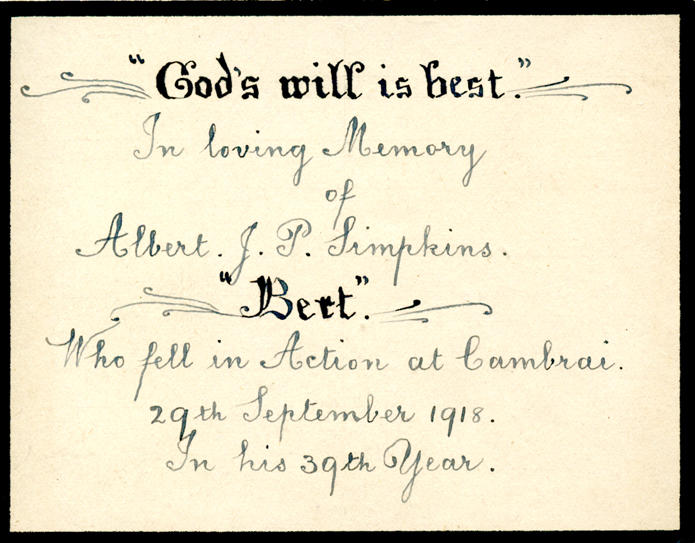 "God's will is best."
In loving Memory
of
Albert. J. P. Simpkins.
"Bert".
Who fell in Action at Cambrai.
29th September 1918.
In his 39th Year.